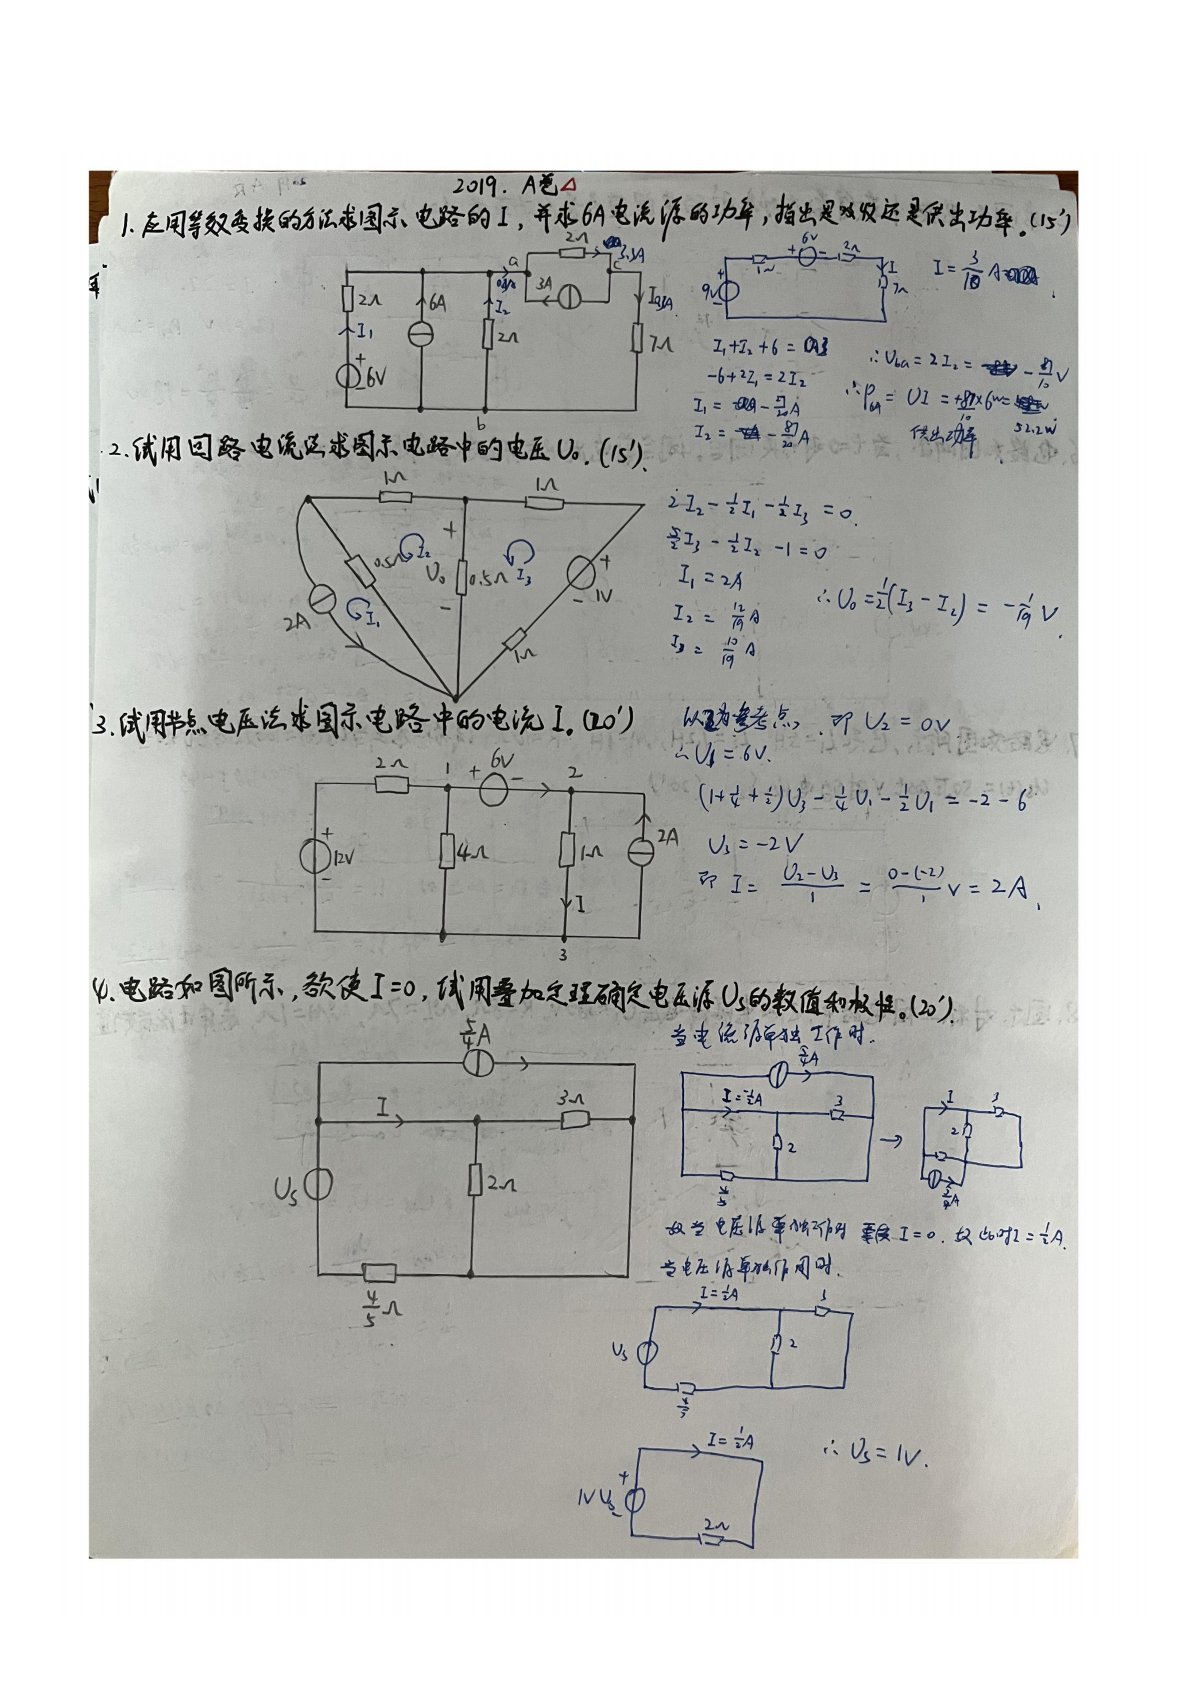 2019. A卷△
1.应用等效变换的方法求图示电路的I,并求6A电流源的功率,指出是吸收还是供出功率。(15')
2Ω
3.3A
a
c
3A
2Ω
6A
I₁
I₂
2Ω
I
7Ω
6V
b
6V
2Ω
1Ω
9V
I
7Ω
I = 3/10 A
I₁+I₂+6 = 0.3
-6+2I₁ = 2I₂
I₁ = -27/20 A
I₂ = -87/20 A
∴Uba = 2I₂ = -87/10 V
∴P6A = UI = +87/10×6W = 52.2W
供出功率
2.试用回路电流法求图示电路中的电压U₀. (15').
1Ω
1Ω
0.5Ω
I₂
+
U₀
-
0.5Ω
I₃
+
1V
-
2A
I₁
1Ω
2I₂ - 1/2 I₁ - 1/2 I₃ = 0.
5/2 I₃ - 1/2 I₂ - 1 = 0
I₁ = 2A
I₂ = 12/19 A
I₃ = 10/19 A
∴U₀ = 1/2(I₃ - I₂) = -1/19 V.
3.试用节点电压法求图示电路中的电流I。(20')
2Ω
1
+
6V
-
2
+
12V
-
4Ω
1Ω
2A
I
3
以2为参考点, 即U₂ = 0V
∴U₁ = 6V.
(1+1/4+1/2)U₃ - 1/4 U₁ - 1/2 U₁ = -2 - 6
U₃ = -2V
即 I = (U₂-U₃)/1 = (0-(-2))/1 V = 2A.
4.电路如图所示,欲使I=0,试用叠加定理确定电压源Us的数值和极性。(20').
5/4 A
I
3Ω
Us
2Ω
4/5 Ω
当电流源单独工作时.
5/4 A
I=-1/2A
3
2
4/5
→
I
3
2
5/4 A
故当电压源单独工作时 要使I=0. 故此时I=1/2A.
当电压源单独作用时.
I=1/2A
3
Us
2
4/5
I=1/2A
+
1V Us
-
2Ω
∴ Us = 1V.